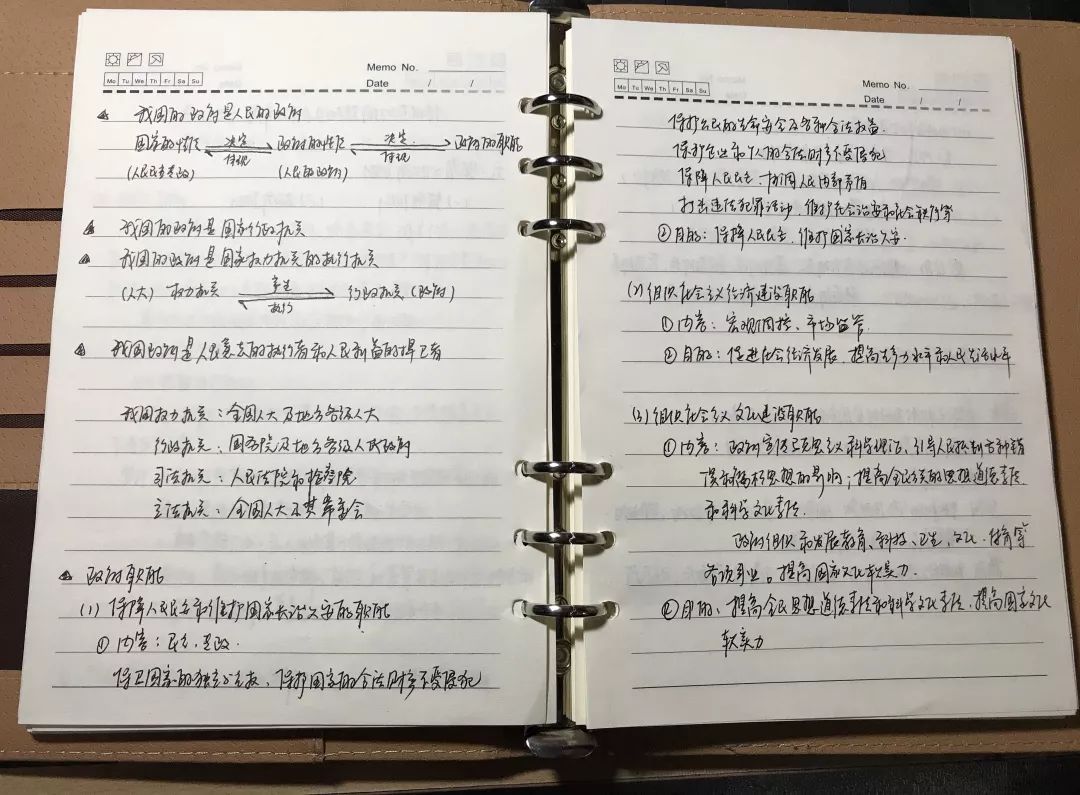 Memo No.
Mo Tu We Th Fr Sa Su
Date / /
我国的政府是人民的政府
国家的性质 决定 体现 政府的性质 决定 体现 政府的职能
(人民民主专政) (人民的政府)
我国的政府是国家行政机关
我国的政府是国家权力机关的执行机关
(人大) 权力机关 产生 执行 行政机关 (政府)
我国政府是人民意志的执行者和人民利益的捍卫者
我国权力机关:全国人大及地方各级人大
行政机关:国务院及地方各级人民政府
司法机关:人民法院和检察院
立法机关:全国人大及其常委会
政府职能
(1) 保障人民民主和维护国家长治久安的职能
①内容:民主,专政.
保卫国家的独立和主权,保护国家的合法财产不受侵犯
Memo No.
Mo Tu We Th Fr Sa Su
Date / /
保护公民的生命安全及各种合法权益.
保护企业和个人的合法财产不受侵犯
保障人民民主.协调人民内部矛盾
打击违法犯罪活动,维护社会治安和社会秩序等
②目的:保障人民民主,维护国家长治久安.
(2)组织社会主义经济建设职能
①内容:宏观调控、市场监管
②目的:促进社会经济发展,提高生产力水平和人民生活水平
(3)组织社会主义文化建设职能
①内容:政府宣传马克思主义科学理论,引导人民抵制各种错
误和腐朽思想的影响;提高全民族的思想道德素质
和科学文化素质.
政府组织和发展教育、科技、卫生、文化、体育等
各项事业。提高国家文化软实力.
②目的:提高全民思想道德素质和科学文化素质,提高国家文化
软实力